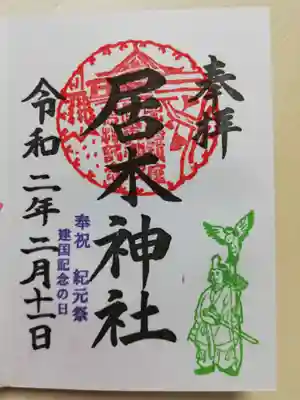 奉拝
居木神社
奉祝 紀元祭
建国記念の日
令和二年二月十一日